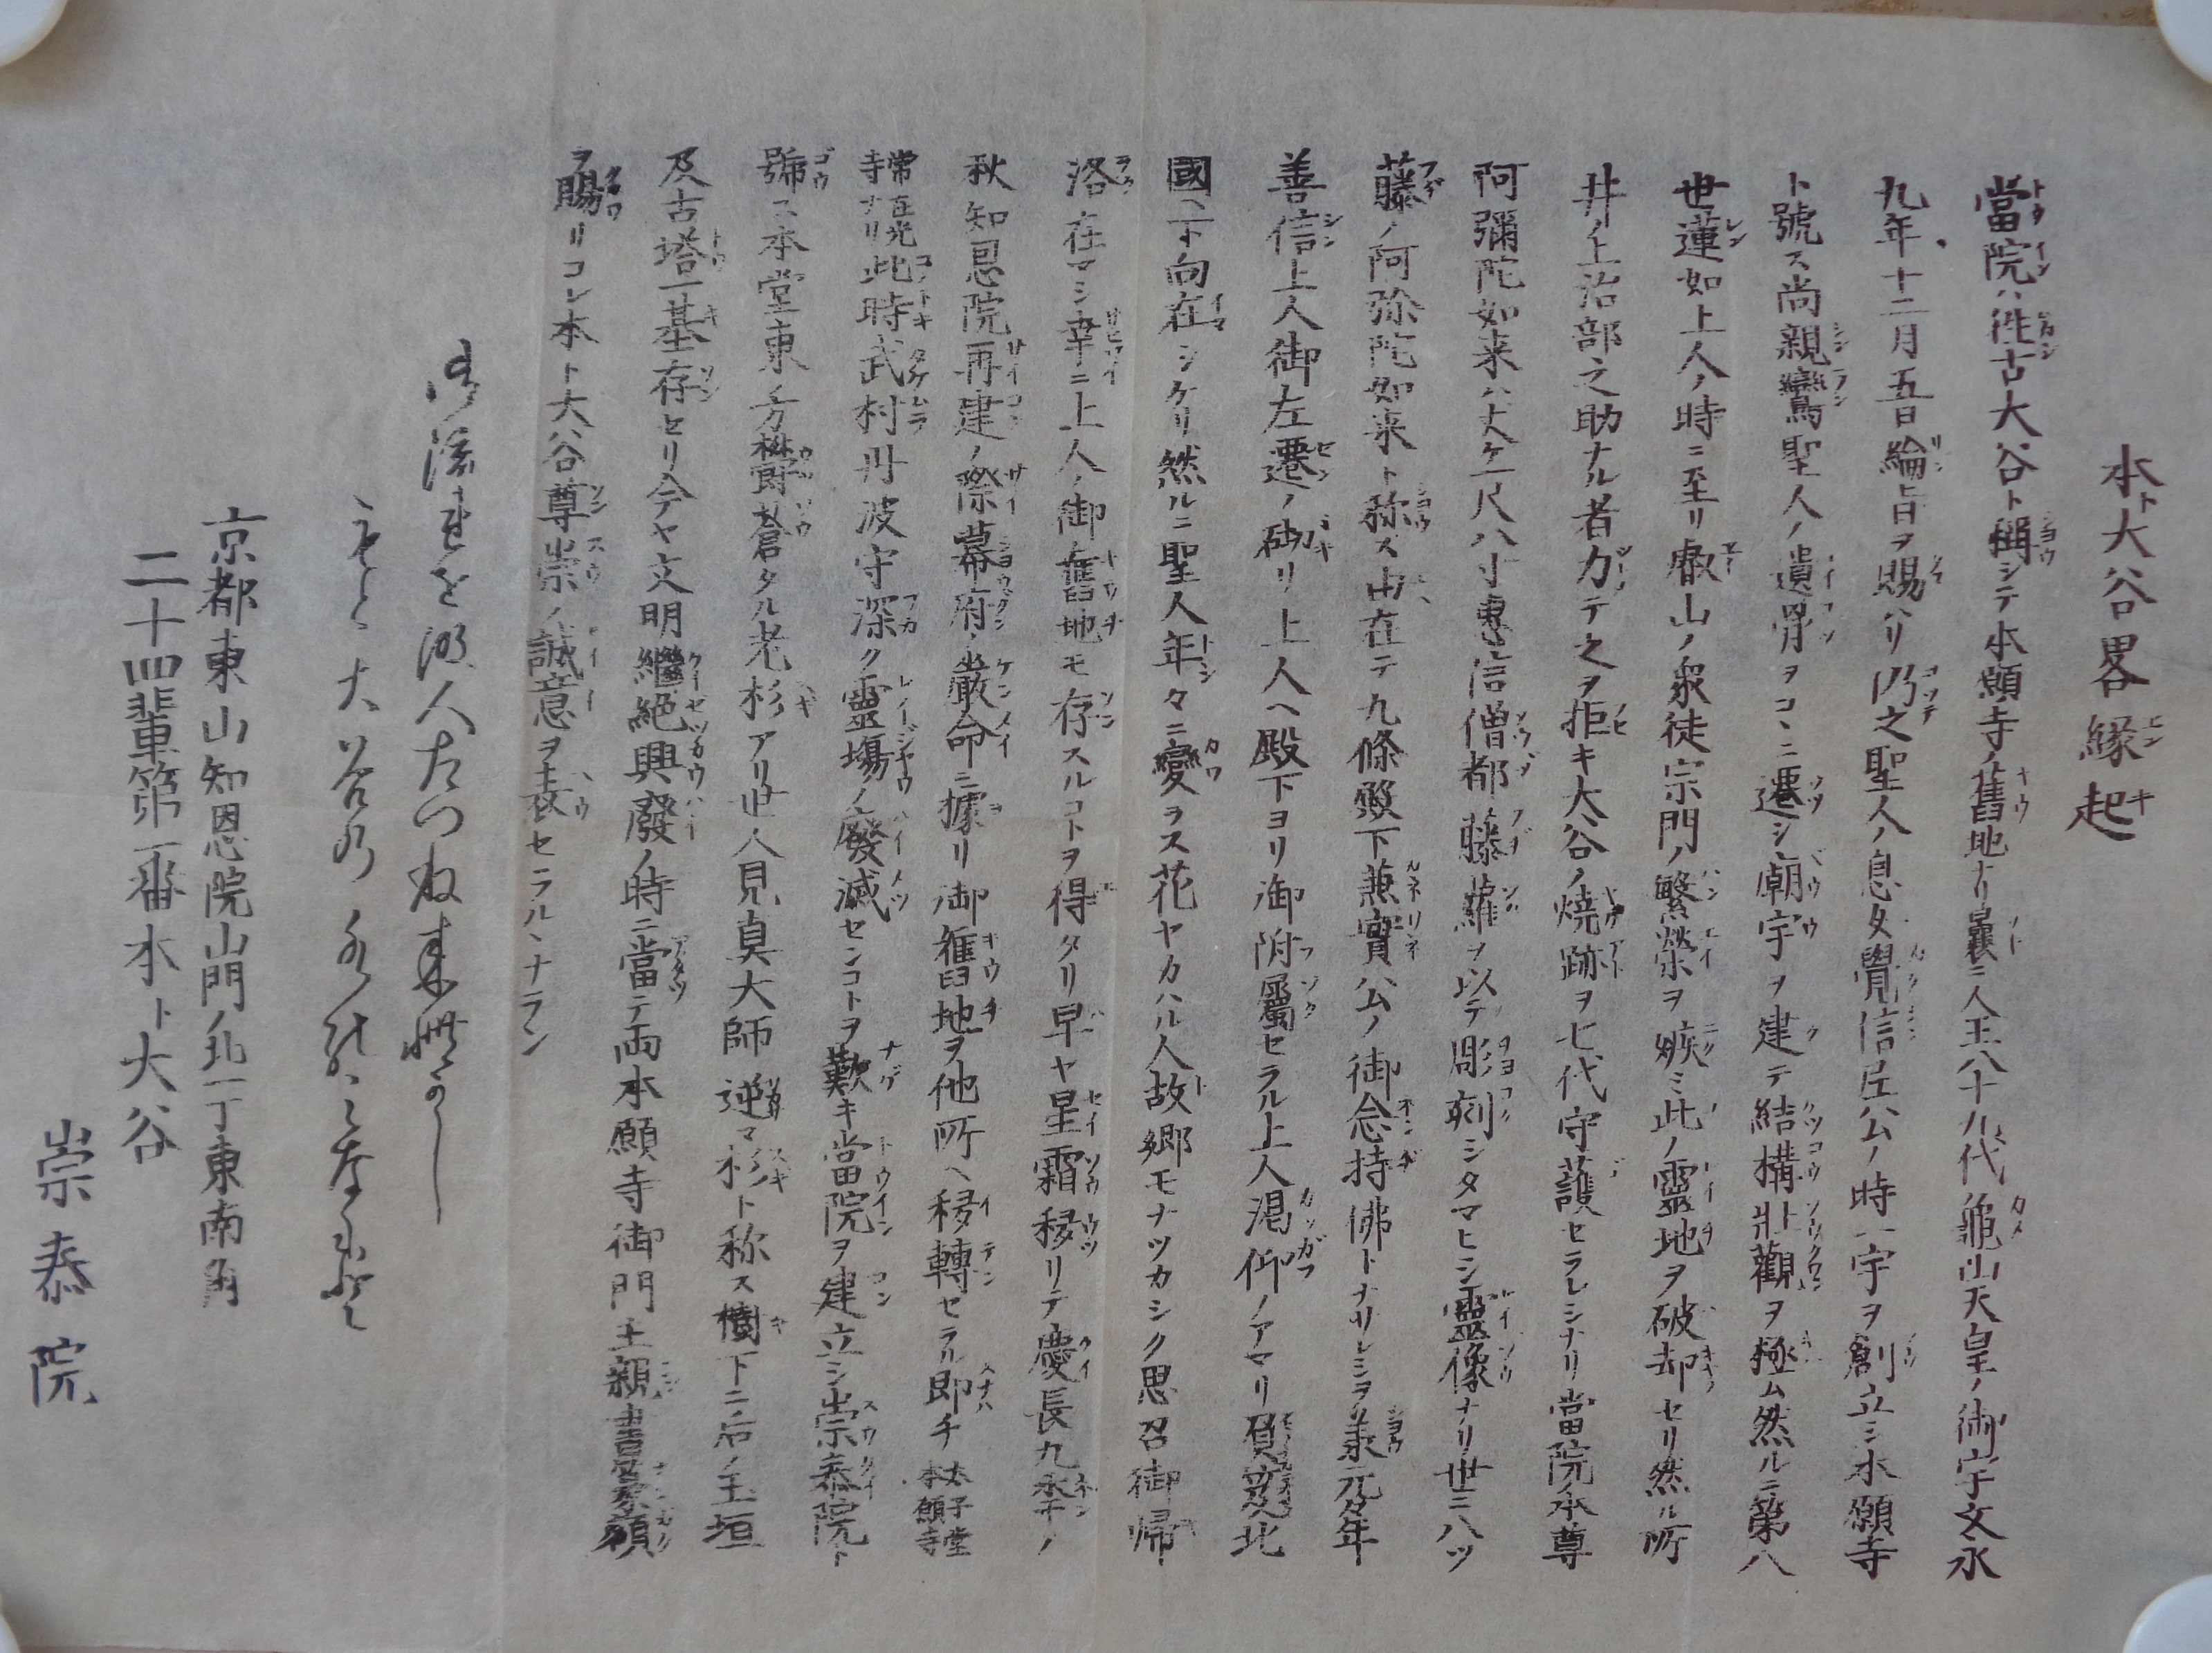 本ト大谷畧縁起
當院ハ徃古大谷ト稱シテ本願寺ノ舊地ナリ曩ニ人王八十九代龜山天皇ノ御宇文永
九年十二月五日綸旨ヲ賜ハリ乃之聖人ノ息女覺信尼公ノ時一宇ヲ創立シ本願寺
ト號ス尚親鸞聖人ノ遺骨ヲコヽニ遷シ廟宇ヲ建テ結構壯觀ヲ極ム然ルニ第八
世蓮如上人ノ時ニ至リ叡山ノ衆徒宗門ノ繁榮ヲ嫉ミ此ノ靈地ヲ破却セリ然ル所
井ノ上治部之助ナル者力テ之ヲ拒キ大谷ノ焼跡ヲ七代守護セラレシナリ當院ノ本尊
阿彌陀如来ハ丈ケ一尺八寸惠信僧都藤蘿ヲ以テ彫刻シタマヒシ靈像ナリ世ニ八ツ
藤ノ阿弥陀如来ト称ス由在テ九條殿下兼實公ノ御念持佛トナリシヲ承元々年
善信上人御左遷ノ砌リ上人ヘ殿下ヨリ御附屬セラル上人渇仰ノアマリ負北
國ヘ下向在シケリ然ルニ聖人年々ニ變ラス花ヤカハル人故郷モナツカシク思召御帰
洛在マシ幸ニ上人ノ御舊地モ存スルコトヲ得タリ早ヤ星霜移リテ慶長九年ノ
秋知恩院再建ノ際幕府ノ嚴命ニ據リ御舊地ヲ他所ヘ移轉セラル即チ太子堂本願寺
常在光寺ナリ此時武村丹波守深ク靈場ノ廢滅センコトヲ歎キ當院ヲ建立シ崇泰院ト
號ス本堂東ノ方欝蒼タル老杉アリ世人見真大師逆マ杉ト称ス樹下ニ石ノ玉垣
及古塔一基存セリ今ヤ文明繼絶興廢ノ時ニ當テ両本願寺御門主親書額
ヲ賜リコレ本ト大谷尊崇ノ誠意ヲ表セラルヽナラン
人たつね来
大谷の
京都東山知恩院山門ノ北一丁東南角
二十四輩第一番本ト大谷
崇泰院